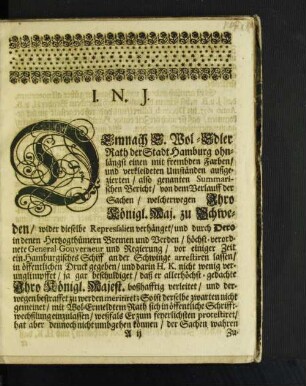 I. N. J.
DEmnach E. Wol-Edler
Rath der Stadt Hamburg ohn-
längst einen mit frembden Farben/
und verkleideten Umständen außge-
zierten / also genanten Summari-
schen Bericht / von dem Verlauff der
Sachen / welcherwegen Ihro
Königl. Maj. zu Schwe-
den / wider dieselbe Represalien verhänget / und durch Dero
in denen Hertzogthümern Bremen und Verden / höchst-verord-
nete General Gouverneur und Regierung / vor einiger Zeit
ein Hamburgisches Schiff an der Schwinge arrestiren lassen /
in öffentlichen Druck gegeben / und darin H. K. nicht wenig ver-
unglimpffet / ja gar beschuldiget / daß er allerhöchst-gedacht
Ihro Königl. Majest. boßhafftig verleitet / und der-
wegen bestraffet zu werden meritiret: So ist derselbe zwarten nicht
gemeinet / mit Wol-Ermeldtem Rath sich in öffentliche Schrifft-
wechslung einzulassen / weßfals Er zum feyerlichsten protestiret /
hat aber dennoch nicht umbgehen können / der Sachen wahren
A ij
Zu-